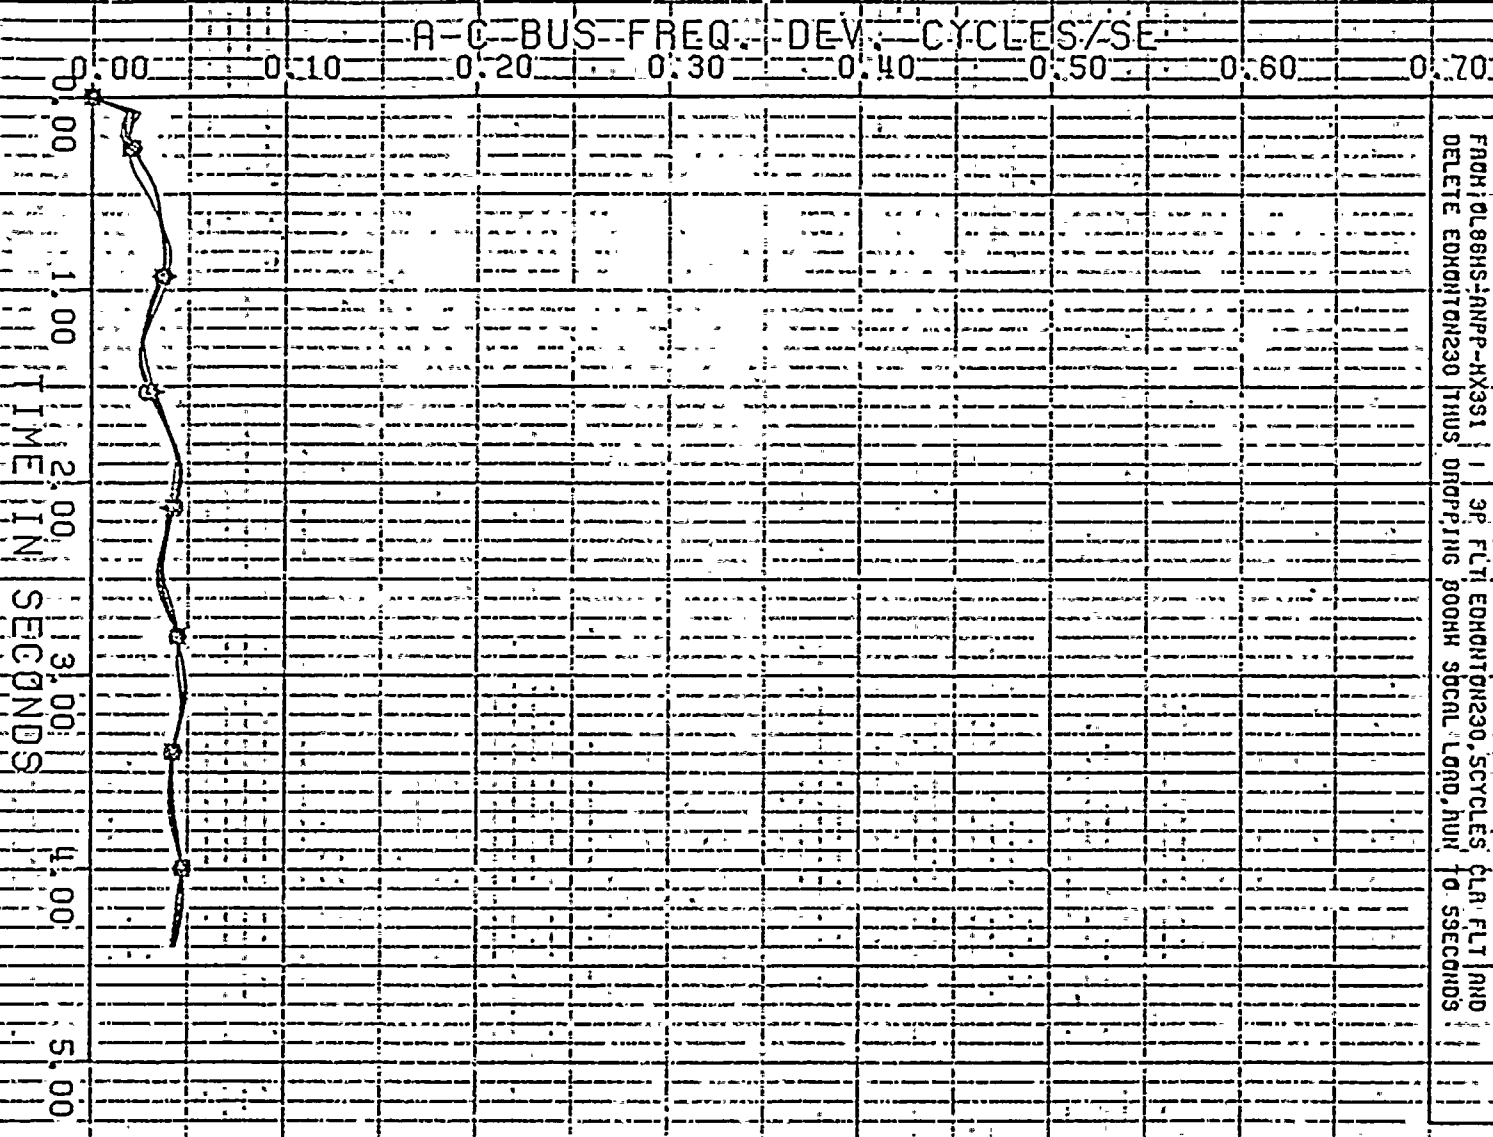 A-C BUS FREQ. DEV. CYCLES/SE
0.00 0.10 0.20 0.30 0.40 0.50 0.60 0.70
0.00 1.00 2.00 3.00 4.00 5.00
TIME IN SECONDS
3P FLT EDMONTON230,5CYCLES CLR FLT AND
DELETE EDMONTON230 THUS DROPPING 800MW SOCAL LOAD,RUN TO 5SECONDS